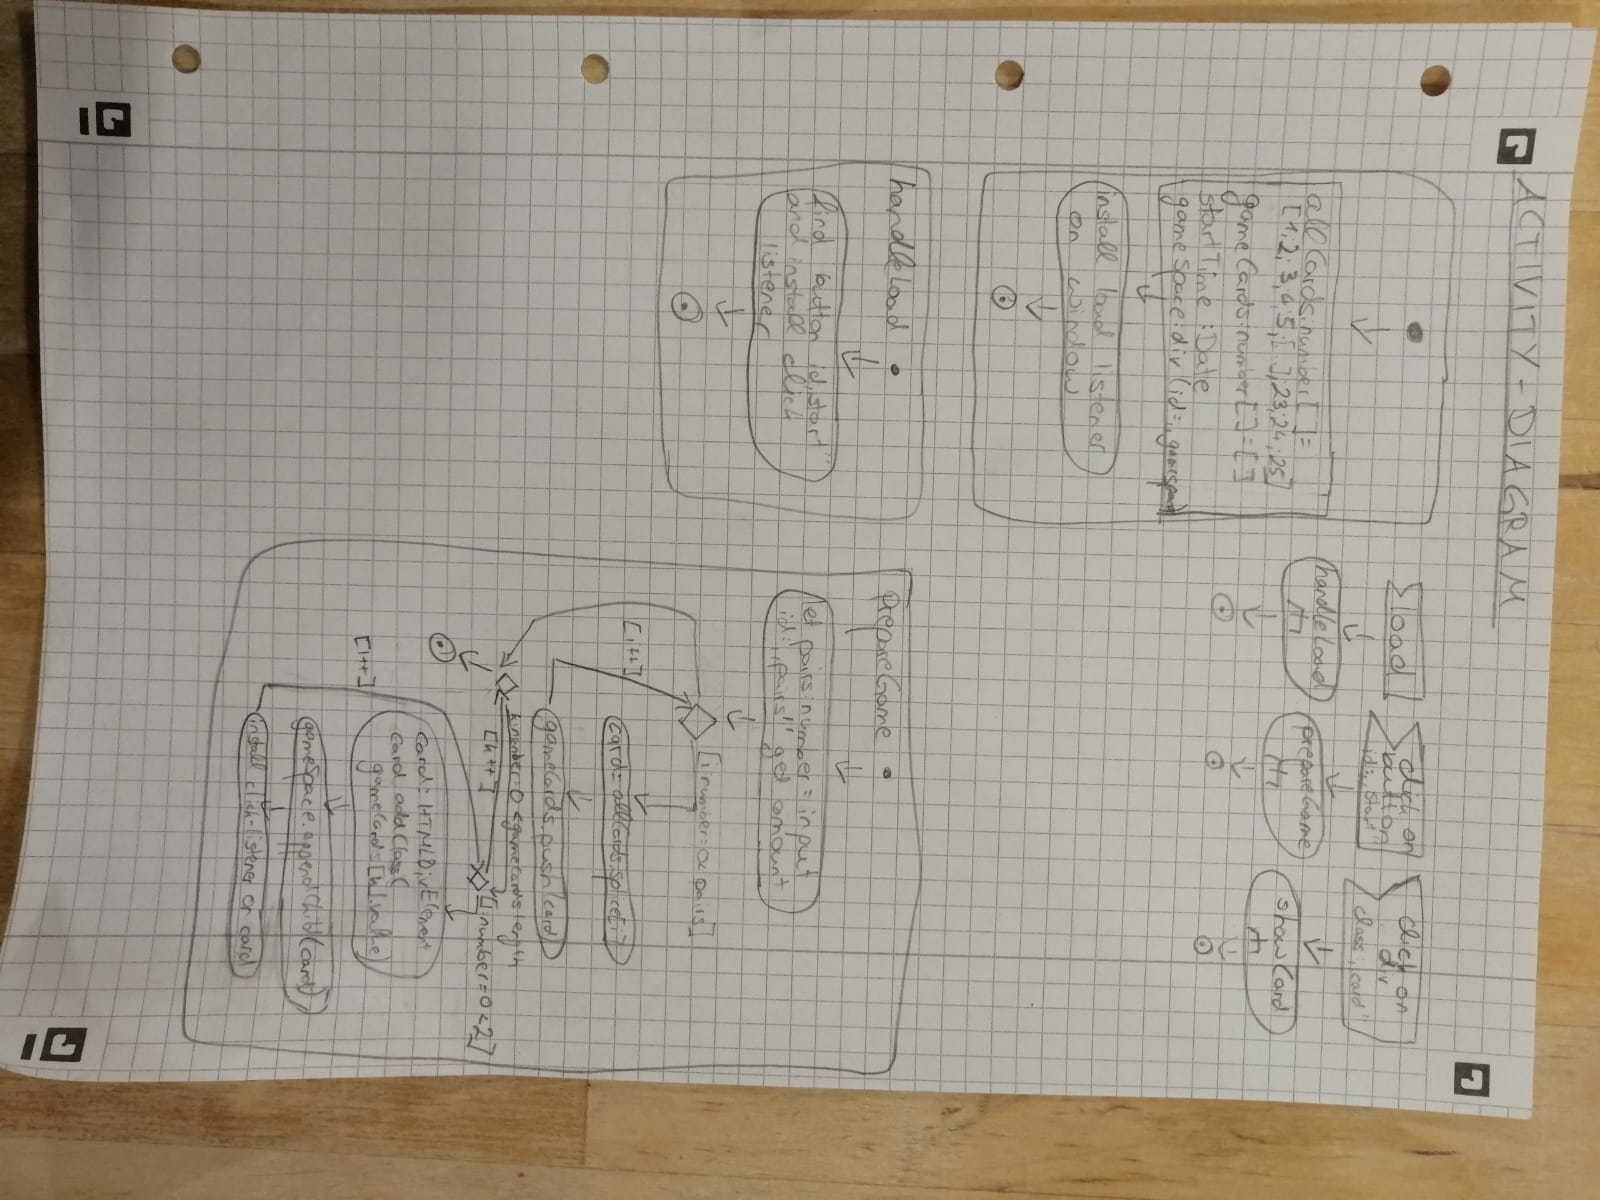 ACTIVITY-DIAGRAM
allCards:number[]=
[1,2;3,4;5;[..],23;24;25]
gameCards:number[]=[]
startTime:Date
gameSpace:div(id=„gamespace
install load listener
on window
load
handleload
click on
button
id=„start"
prepareGame
click on
div
class„card"
showCard
handleload
find button id„start"
and install click
listener
prepareGame
let pairs:number=input
id:„pairs" get amount
[i:number=0<pairs]
card=allCards.splice[i]
gameCards.push(card)
[i++]
k:number=0<gameCards.length
[k++]
[i:number=0<2]
card=HTMLDivElement
card.addClass(
gameCards[k].value)
gameSpace.appendChild(card)
install click-listener on card
[i++]